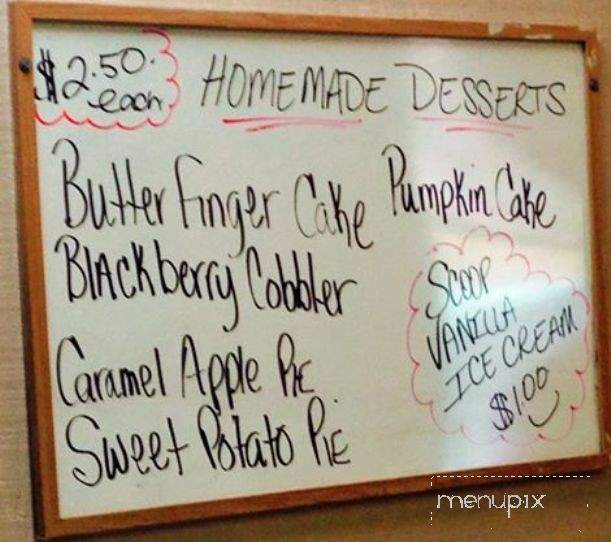 $2.50
each
HOMEMADE DESSERTS
Butter Finger Cake
Pumpkin Cake
Blackberry Cobbler
Caramel Apple Pie
Sweet Potato Pie
Scoop
Vanilla
Ice Cream
$1.00
menupix